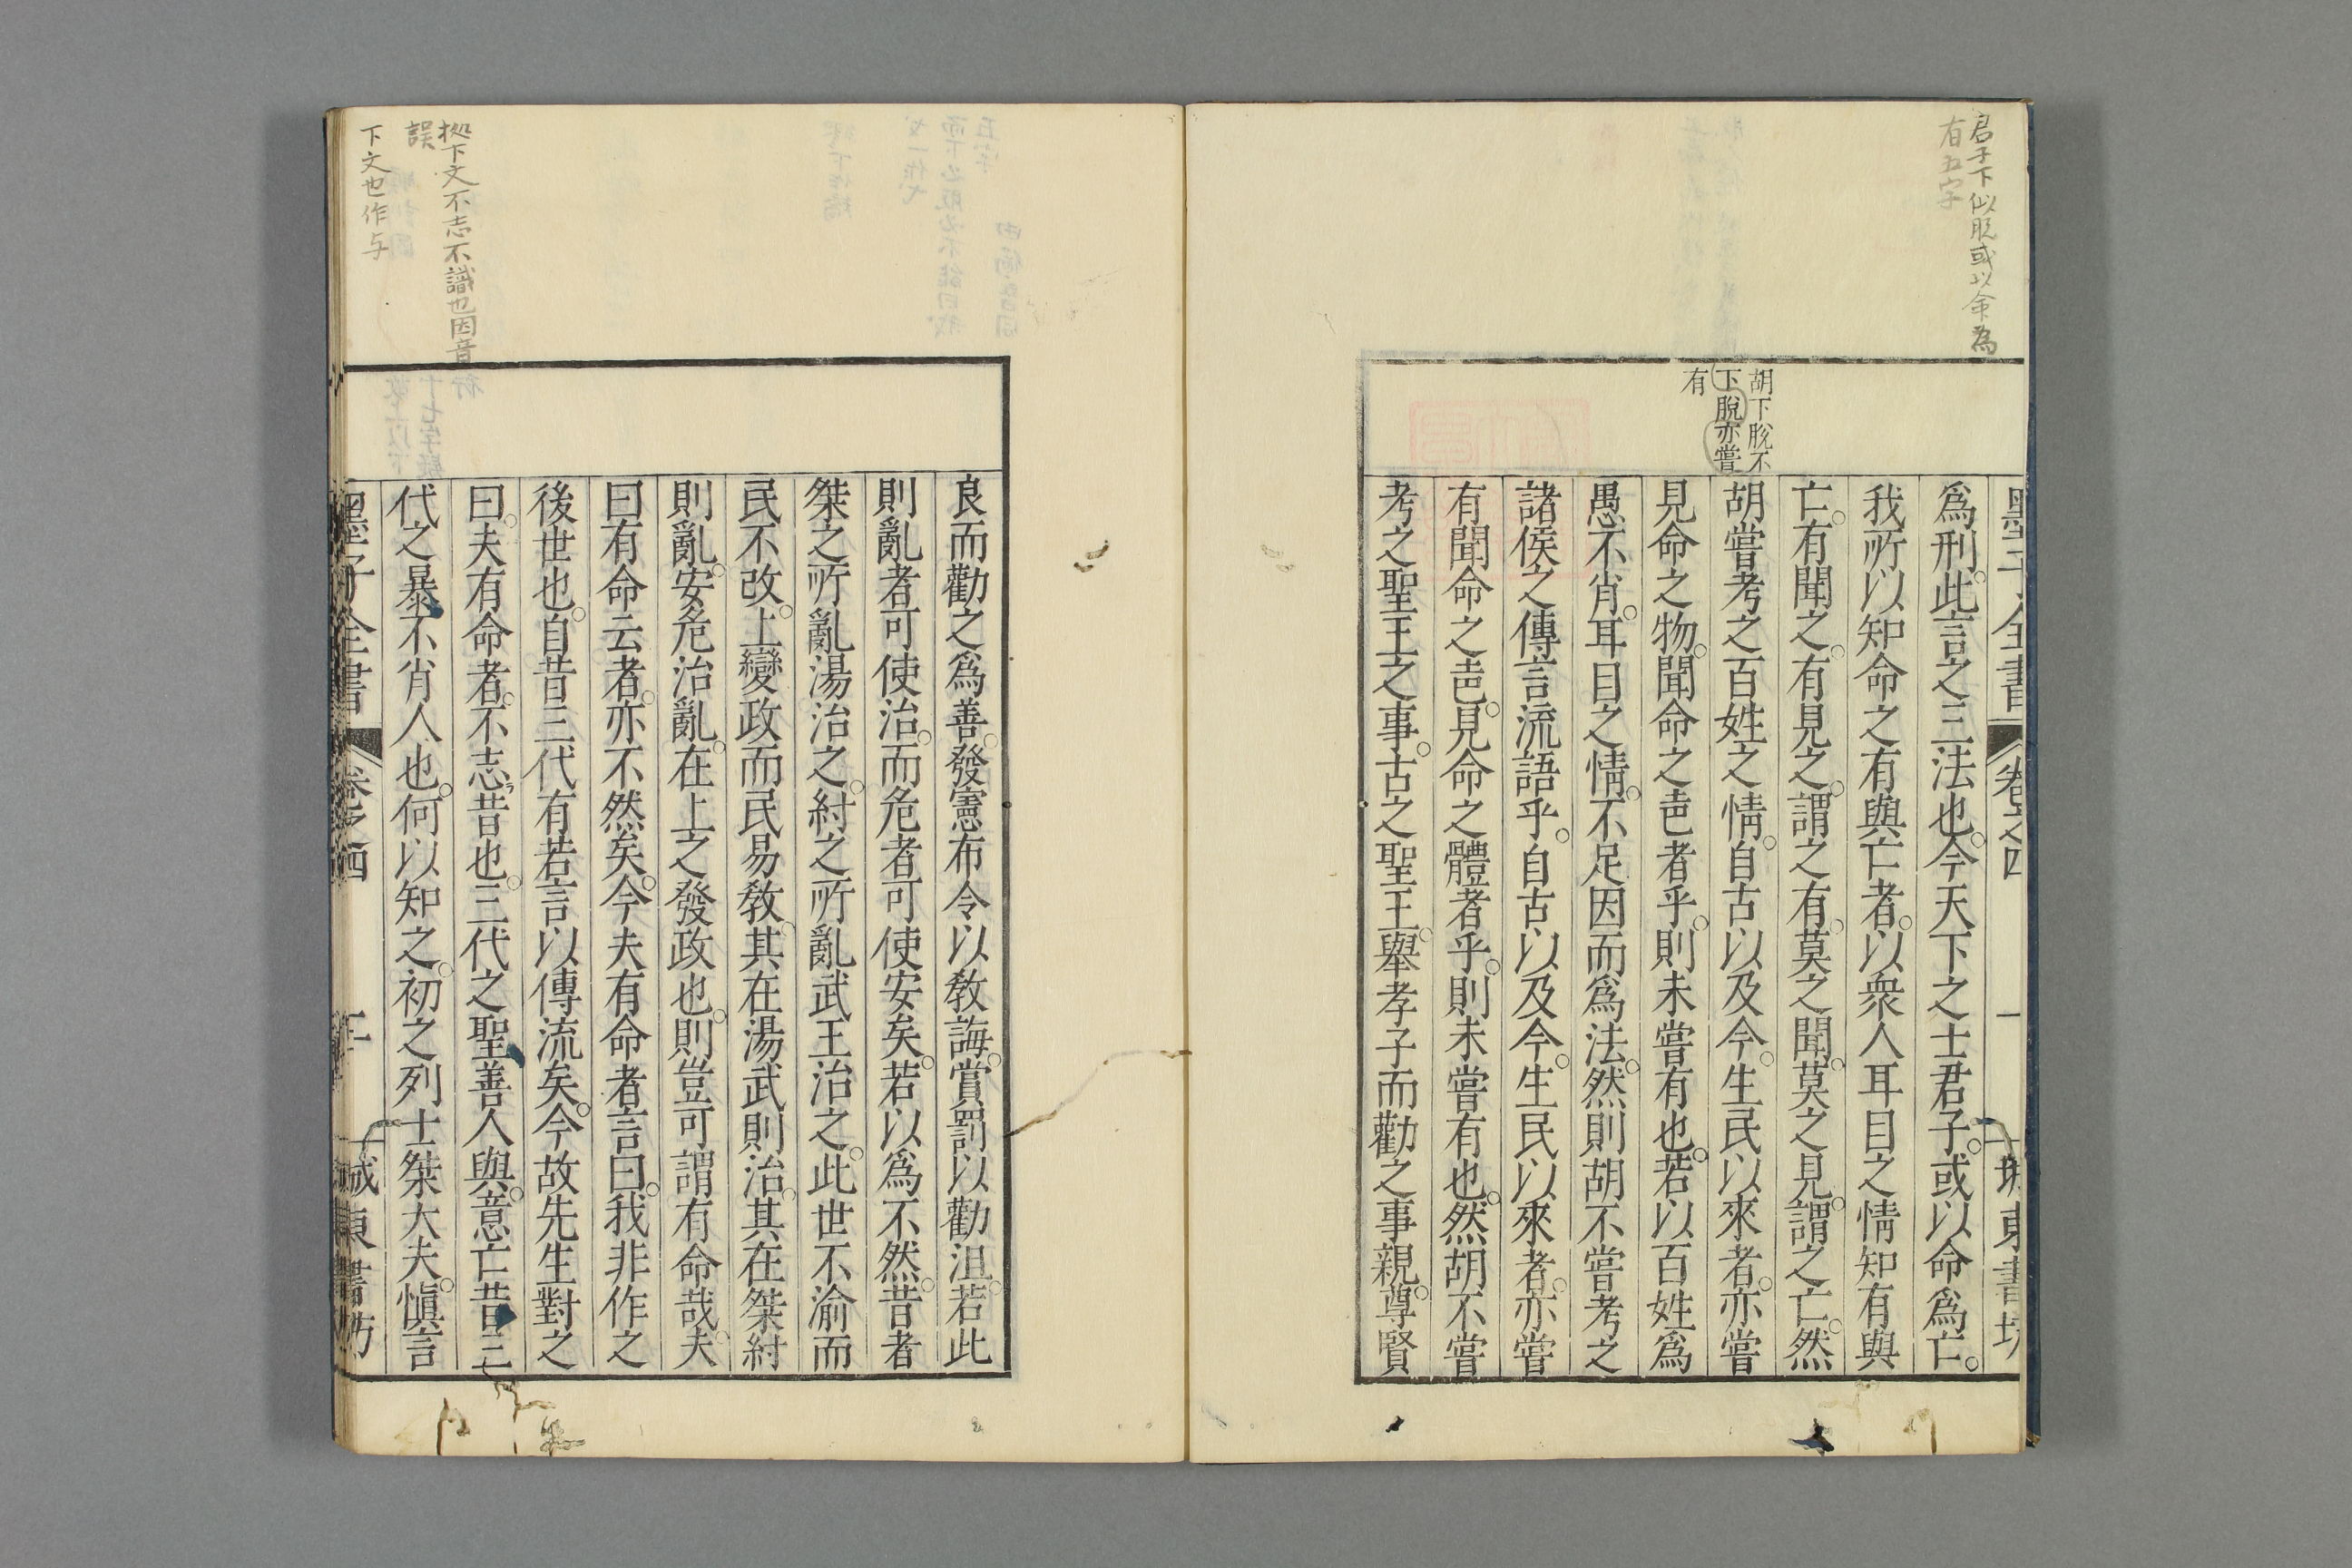 君子下似脱或以命為
有五字
胡下脫不
下脫亦嘗
有
墨子全書 卷之四 一 城東書坊
爲刑。此言之三法也。今天下之士君子。或以命爲亡。
我所以知命之有與亡者。以衆人耳目之情知有與
亡。有聞之。有見之。謂之有。莫之聞。莫之見。謂之亡。然
胡嘗考之百姓之情。自古以及今。生民以來者。亦嘗
見命之物。聞命之声者乎。則未嘗有也。若以百姓爲
愚不肖。耳目之情。不足因而爲法。然則胡不嘗考之
諸侯之傳言流語乎。自古以及今。生民以來者。亦嘗
有聞命之声。見命之體者乎。則未嘗有也。然胡不嘗
考之聖王之事。古之聖王。舉孝子而勸之事親。尊賢
良而勸之爲善。發憲布令以敎誨。賞罰以勸沮。若此
則亂者可使治。而危者可使安矣。若以爲不然。昔者
桀之所亂湯治之。紂之所亂武王治之。此世不渝而
民不改。上變政而民易敎。其在湯武則治。其在桀紂
則亂。安危治亂。在上之發政也。則豈可謂有命哉。夫
曰有命云者。亦不然矣。今夫有命者言曰。我非作之
後世也。自昔三代有若言以傳流矣。今故先生對之
曰。夫有命者。不志昔也。三代之聖善人與。意亡昔三
代之暴不肖人也。何以知之。初之列士桀大夫。愼言
拠下文不志不識也因音
誤
下文也作与
墨子全書 卷之四 城東書坊